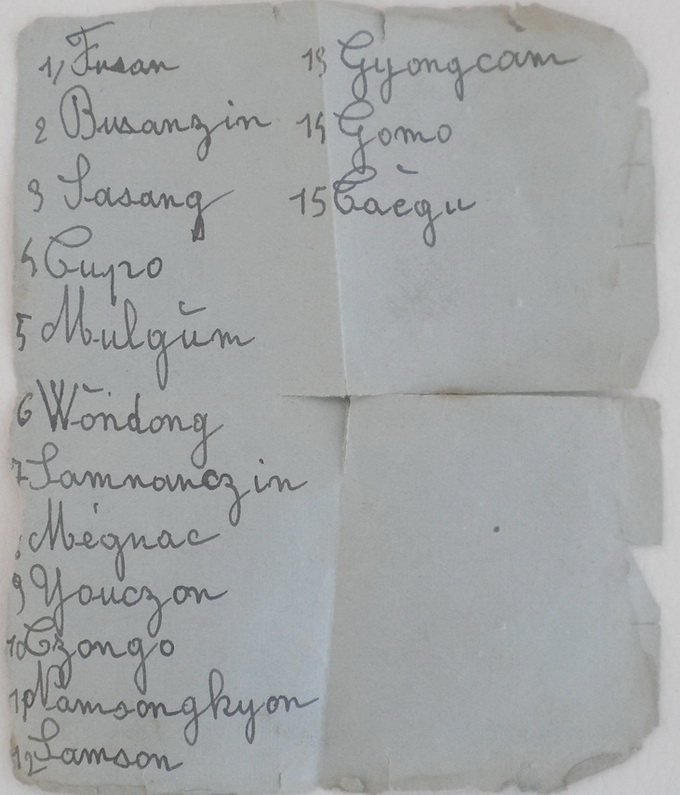 1, Fusan
2 Busanzin
3 Sasang
4 Cupo
5 Mulgŭm
6 Wŏndong
7 Samnanczin
Mégnac
9 Youczon
10 Czongo
11 Namsongkyon
12 Samson
13 Gyongcam
14 Gomo
15 Caègu